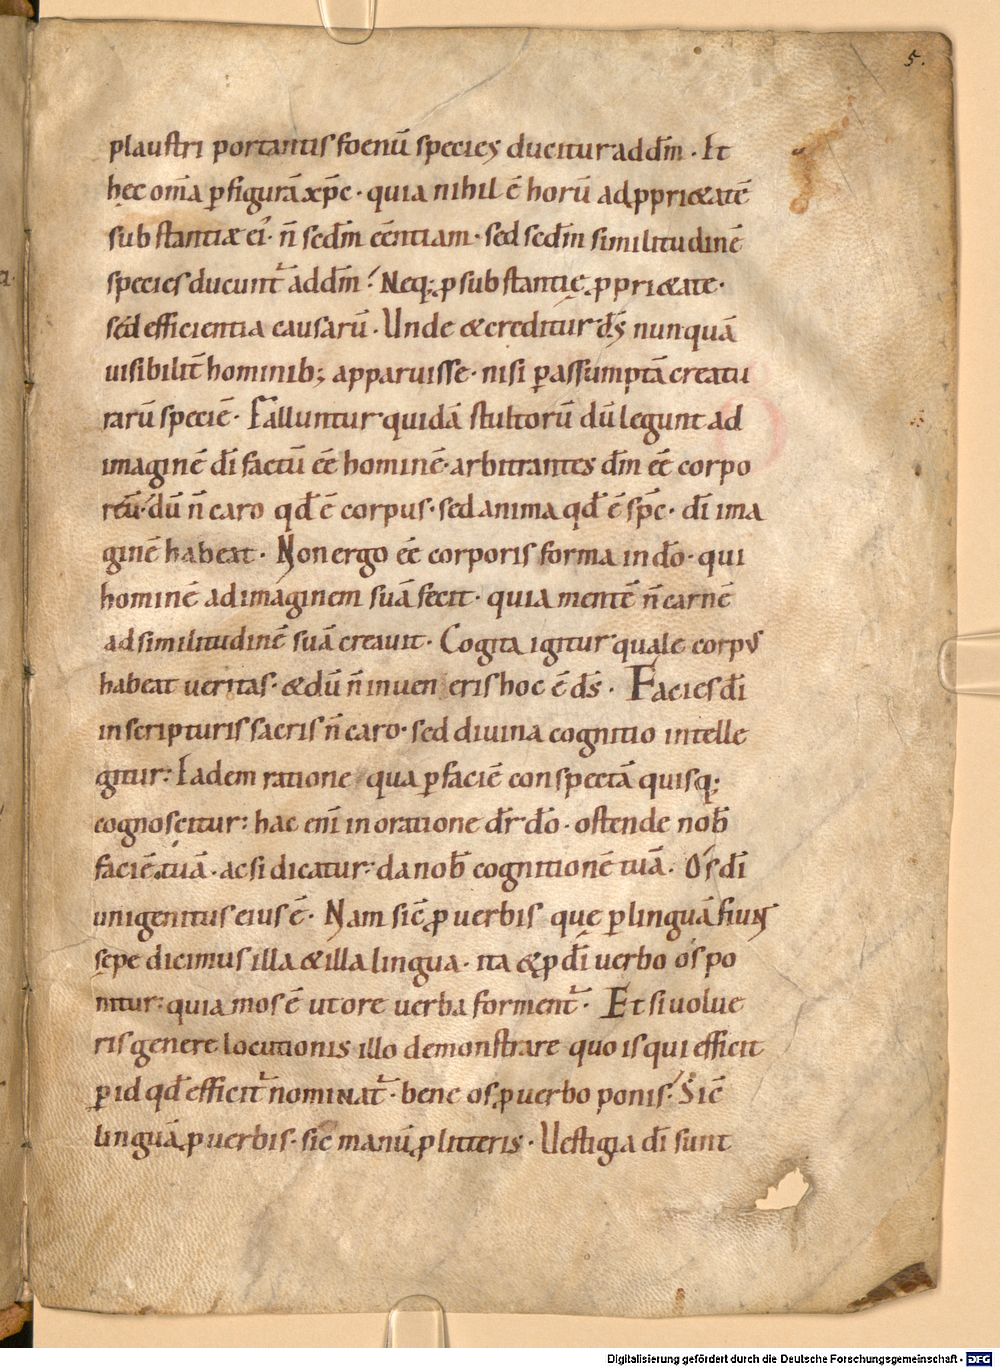 5.
plaustri portantis foenū species ducitur ad dm̄ · Et
hęc om̄a ꝑ figurā xp̄c · quia nihil ē horū ad ꝓprietatē
substantiæ ei᾽ · n̄ scd̄m eēntiam · sed scd̄m similitudinē
species ducunt̄ ad dm̄ ? Neq; ꝓ substantię ꝓprietate ·
sed efficientia causarū · Unde & creditur ds̄ nunquā
uisibilit̄ hominib; apparuisse · nisi ꝑ assumptā creatu
rarū speciē · Falluntur quidā stultorū dū legunt ad
imaginē dī factū eē hominē · arbitrantes dm̄ eē corpo
reū · dū n̄ caro qd̄ ē corpus · sed anima qd̄ ē sp̄c · dī ima
ginē habeat · Non ergo eē corporis forma in dō · qui
hominē ad imáginem suā fecit · quia mentē n̄ carnē
ad similitudinē suā creauit · Cogita igitur quale corpus
habeat ueritas · & dū n̄ inueneris hoc ē ds̄ · Facies dī
in scripturis sacris n̄ caro · sed diuina cognitio intelle
gitur : Eadem ratione qua ꝑ faciē conspectā quisq;
cognoscitur : hac enī in oratione dr̄ dō · ostende nob̄
faciē tuā · ac si dicatur · da nob̄ cognitionē tuā · Ós dī
unigenitus eius ē · Nam sic̄ ꝓ uerbis que ꝑ linguā fiunt
sępe dicimus illa & illa lingua · ita & ꝓ dī uerbo ós po
nitur : quia mos ē ut ore uerba forment̄ · Et si uolue
ris genere locutionis illo demonstrare quo is qui efficit
ꝑ id qd̄ efficit̄ nominat̄ · bene os ꝓ uerbo ponis · Sic̄
linguā ꝓ uerbis · sic̄ manū ꝓ litteris · Uestigia dī sunt
Digitalisierung gefördert durch die Deutsche Forschungsgemeinschaft - DFG